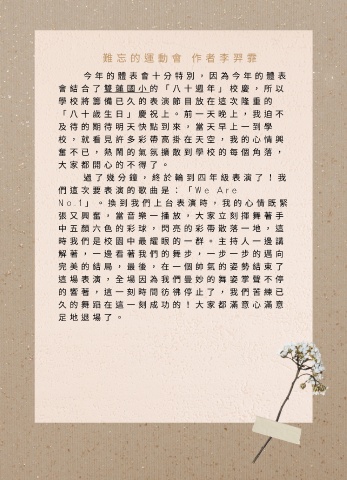 難忘的運動會 作者李羿霏
今年的體表會十分特別，因為今年的體表
會結合了雙蓮國小的「八十週年」校慶，所以
學校將籌備已久的表演節目放在這次隆重的
「八十歲生日」慶祝上。前一天晚上，我迫不
及待的期待明天快點到來，當天早上一到學
校，就看見許多彩帶高掛在天空，我的心情興
奮不已，熱鬧的氣氛擴散到學校的每個角落，
大家都開心的不得了。
過了幾分鐘，終於輪到四年級表演了！我
們這次要表演的歌曲是：「We Are
No.1」。換到我們上台表演時，我的心情既緊
張又興奮，當音樂一播放，大家立刻揮舞著手
中五顏六色的彩球，閃亮的彩帶散落一地，這
時我們是校園中最耀眼的一群。主持人一邊講
解著，一邊看著我們的舞步，一步一步的邁向
完美的結局，最後，在一個帥氣的姿勢結束了
這場表演，全場因為我們曼妙的舞姿掌聲不停
的響著，這一刻時間彷彿停止了，我們苦練已
久的舞蹈在這一刻成功的！大家都滿意心滿意
足地退場了。